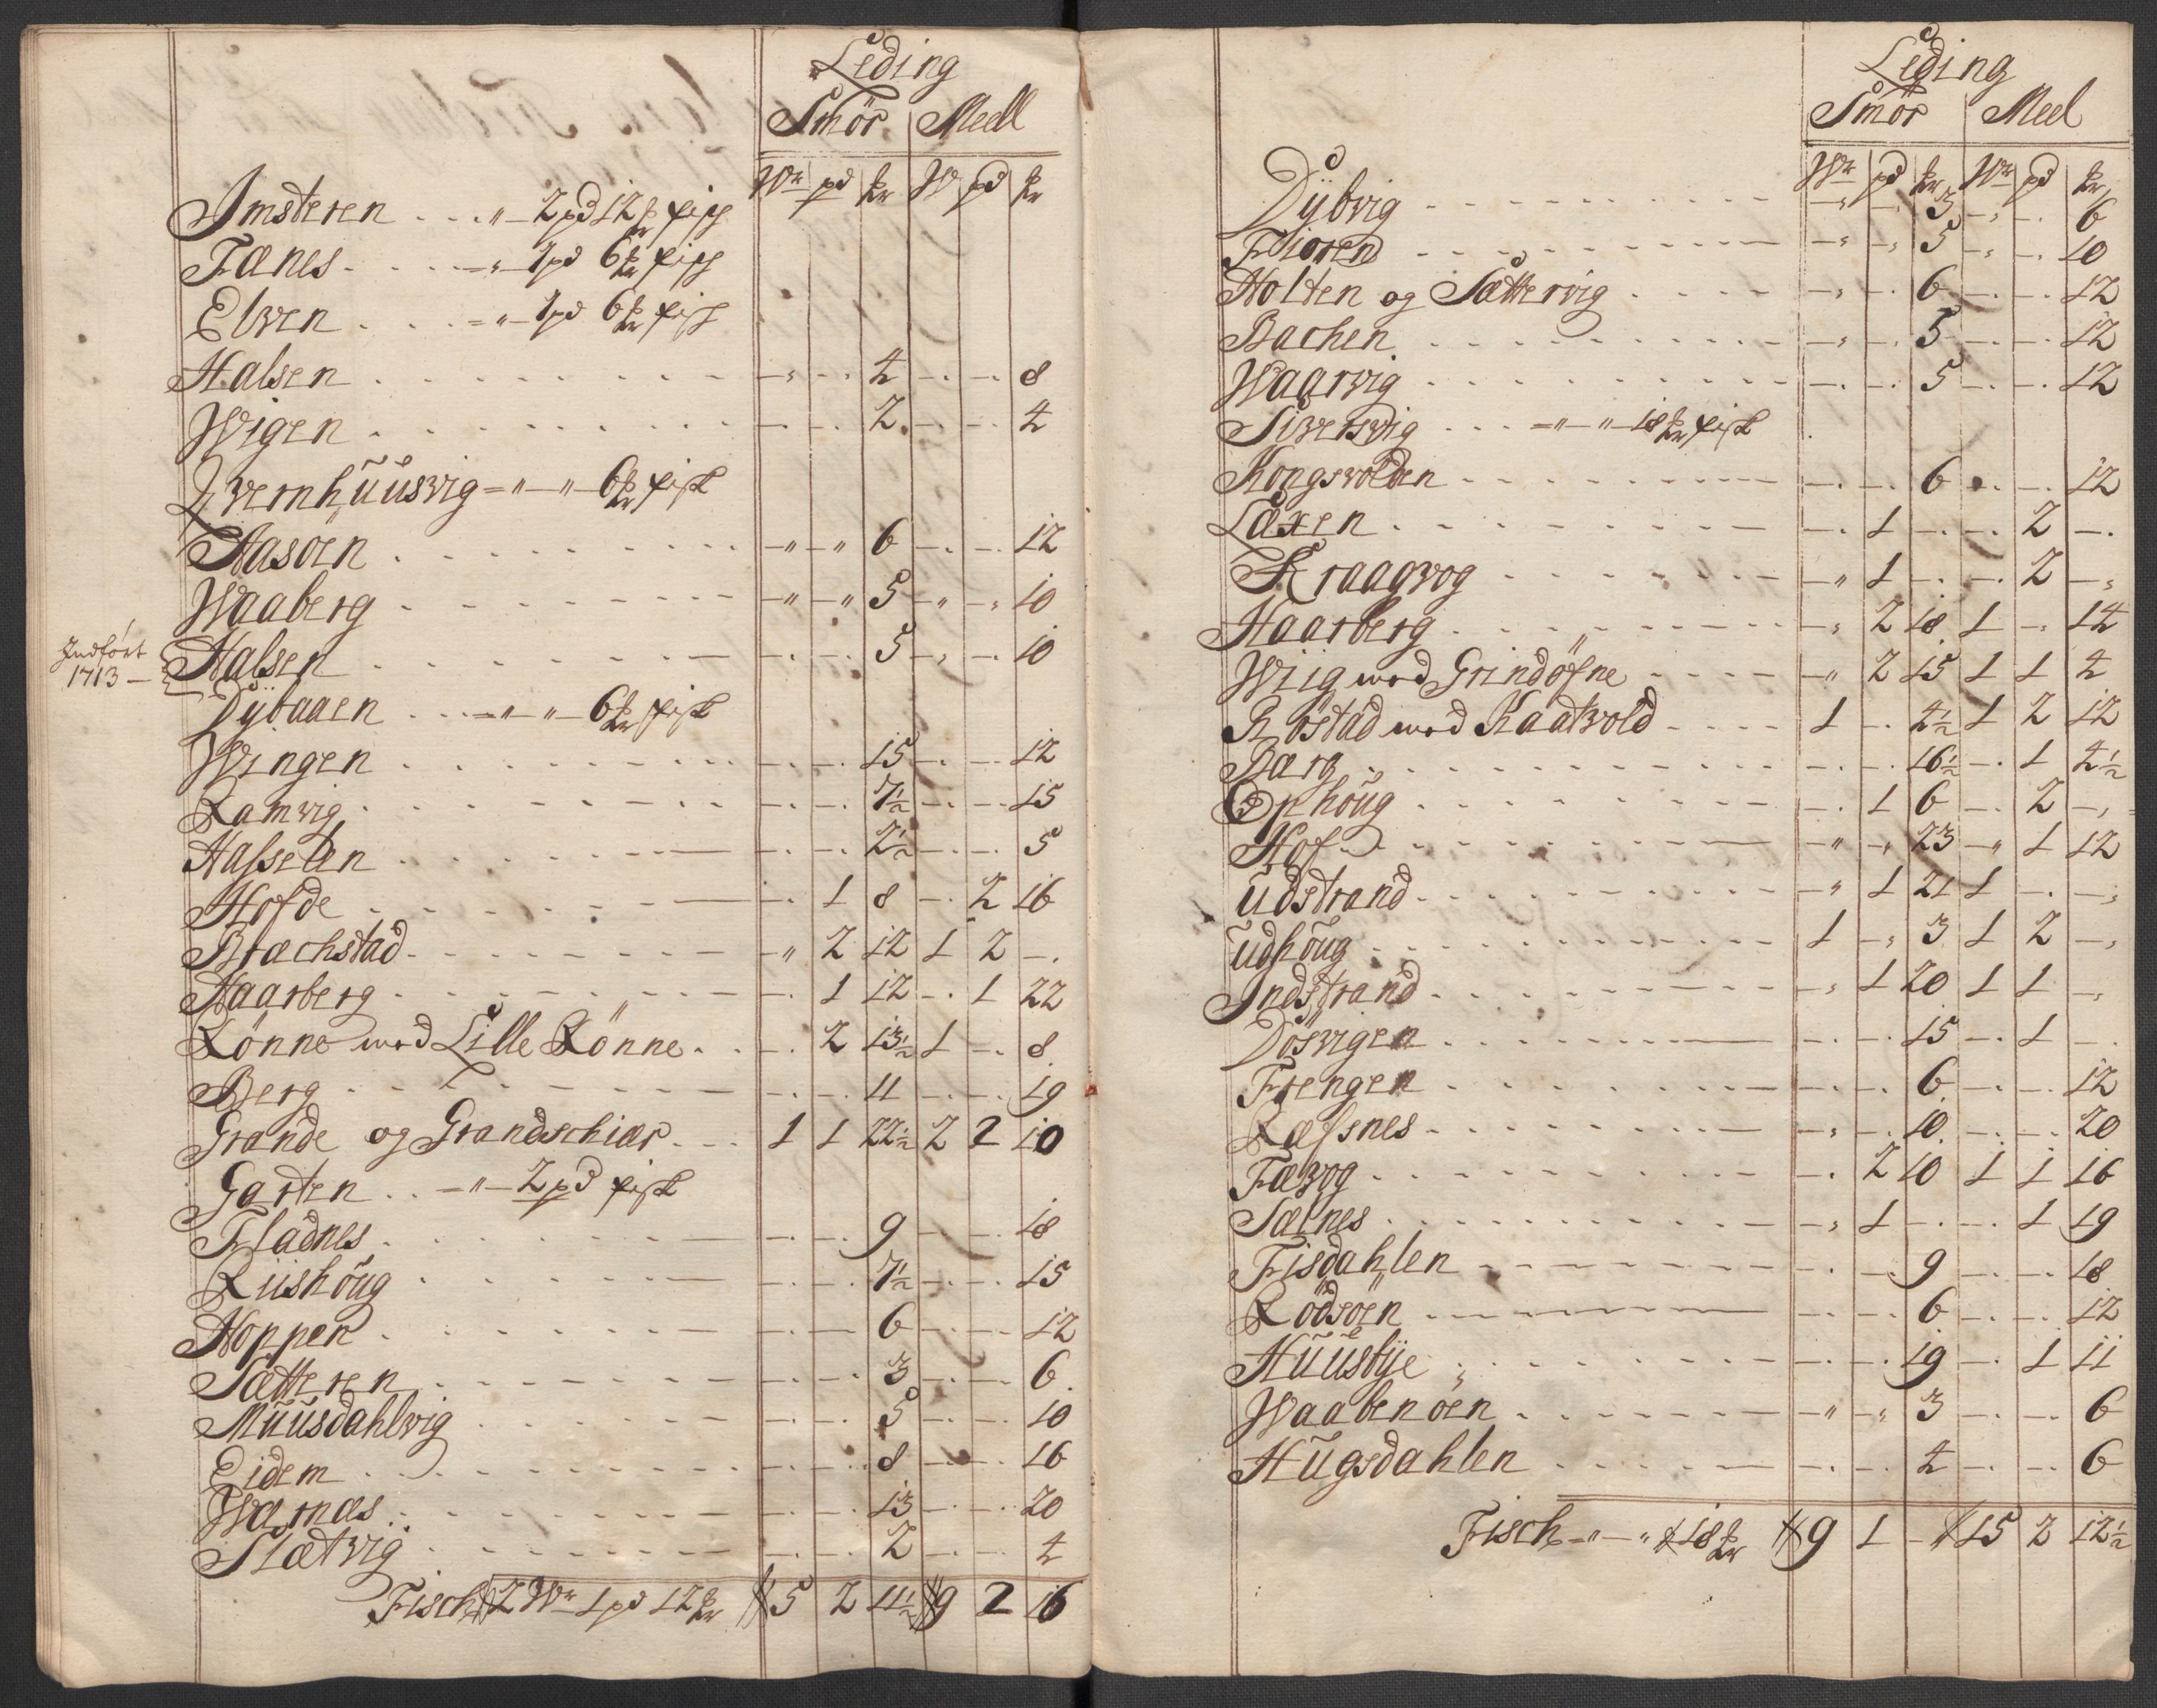 Leding
Smör Meell
Wr pd W pd
Imsteren - - - " - 2 pd 12 fisch
Fænes - - - - " - 1 pd 6 fisch
Elven - - - " - 1 pd 6 fisch
Halsen - - - 4 - - 8
Wigen - - - 2 - - 4
Qvernhuusvig = " - " - 6 fisk
Aasöen - " - " 6 - - 12
Waaberg - " - " 5 - " - 10
Indfört
1713 -
Halsen - - - 5 - - 10
Dÿbaaen - - = " - " - 6 fisk
Wingen - - - 15 - - 12
Ramvig - - - 7½ - - 15
Hasselen - - - 2½ - - 5
Hofde - - 1 8 - 2 16
Brechstad - " 2 12 1 2 -
Haarberg - - 1 12 - 1 22
Rönne med Lille Rönne - - 2 13½ 1 - 8
Berg - - - 11 - - 19
Grande og Grandschiær - - 1 1 22½ 2 2 10
Garten - - " - 2 pd fisk
Fladnes - - - 9 - - 18
Riishöug - - - 7½ - - 15
Hopper - - - 6 - - 12
Sætteren - - - 3 - - 6
Muusdahlvig - - - 5 - - 10
Eidem - - - 8 - - 16
Wærnæs - - - 13 - - 20
Slætvig - - - 2 - - 4
Fisch 2 Wr 1 pd 12 5 2 11½ 9 2 16
Leding
Smör Meel
Wr pd Wr pd
Dÿbvig - - - 3 - - 6
Fioren - - - 5 - - 10
Holten og Sættervig - - - 6 - - 12
Bachen - - - 5 - - 12
Waarvig - - - 5 - - 12
Siversvig - - - = " - " - 18 fisk
Kongsvolden - - - 6 - - 12
Laxen - - 1 - - 2 -
Kraagvog - " 1 - - 2 -
Haarberg - - 2 18 1 - 14
Wiig med Grindöfne - " 2 15 1 1 4
Röstad med Kaatvold - - 1 - 4½ 1 2 12
Berg - - - 16½ - 1 4½
Ophöug - - 1 6 - 2 -
Hof - " - " 23 - " 1 12
Udstrand - " 1 21 1 - -
Udhöug - 1 - 3 1 2 -
Indstrand - - 1 20 1 1 -
Dösvigen - - - 15 - 1 -
Frengen - - - 6 - - 12
Ræfsnes - - - 10 - - 20
Fævog - - 2 10 1 1 16
Sælnes - - 1 - - 1 19
Fisdahlen - - - 9 - - 18
Rödsöen - - - 6 - - 12
Huusbÿe - - - 19 - 1 11
Waabenöen - " - " 3 - - 6
Hugsdahlen - - - 4 - - 6
Fisch = " - " 18 9 1 - 15 2 12½